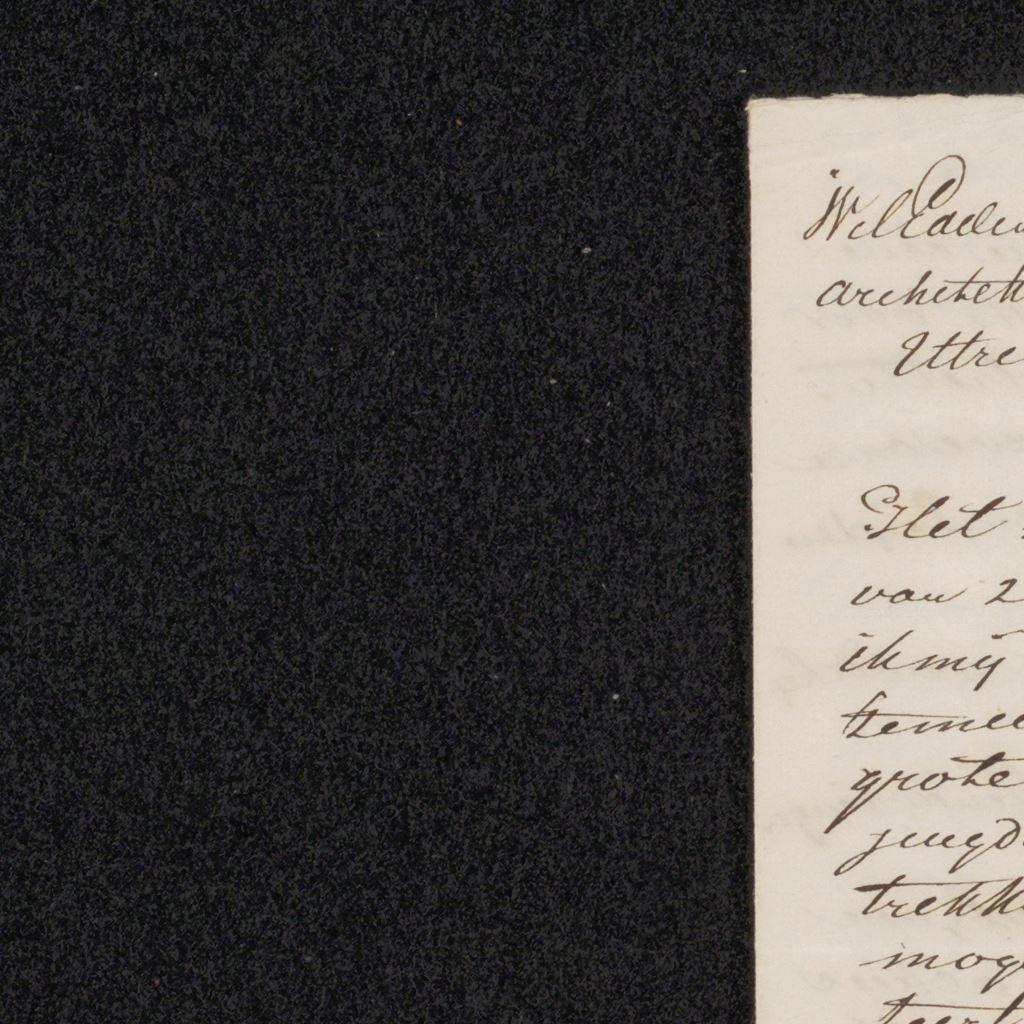 architek
Utre
Het
van 2
ik mij
temee
grote
jeugd
trekk
mog